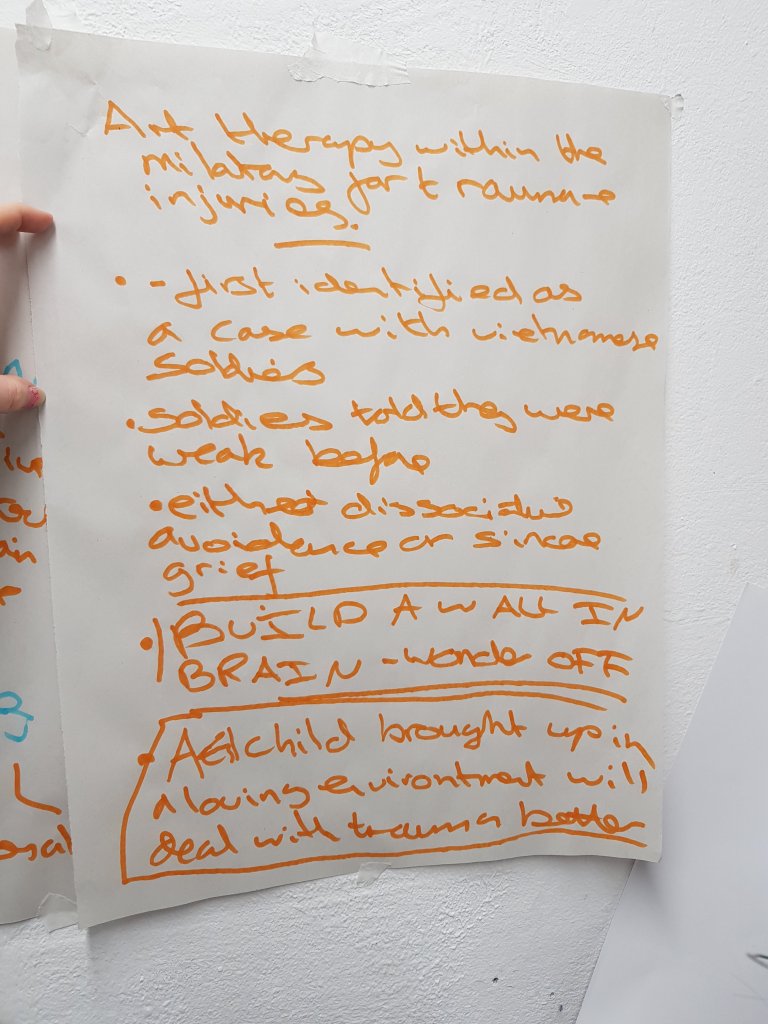 Art therapy within the
milatary for trauma
injuries.
- first identified as
a case with vietnamese
soldiers
soldiers told they were
weak before
either
avoidance or
grief
BUILD A WALL IN
BRAIN - wonder OFF
child brought up in
a loving environtment will
deal with trauma better